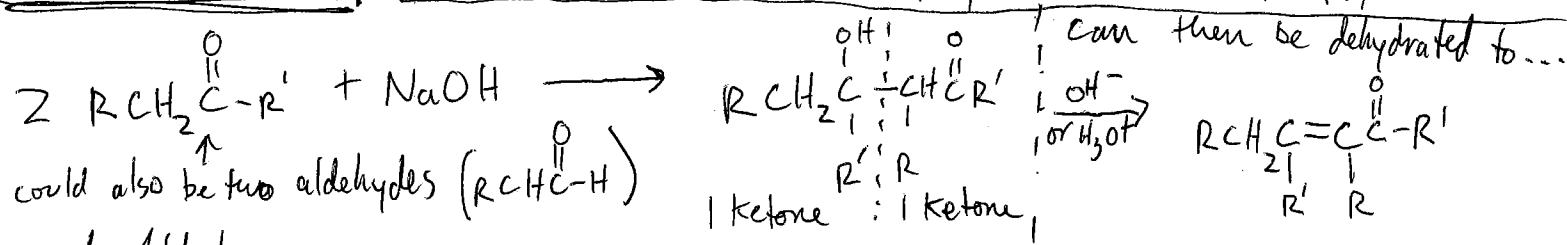 OH O can then be dehydrated to...
O
2 RCH2C-R' + NaOH → RCH2C-CHCR' OH- or H3O+ → RCH2C=CC-R'
R' R O R' R
could also be two aldehydes (RCHC-H)
O
1 ketone 1 ketone